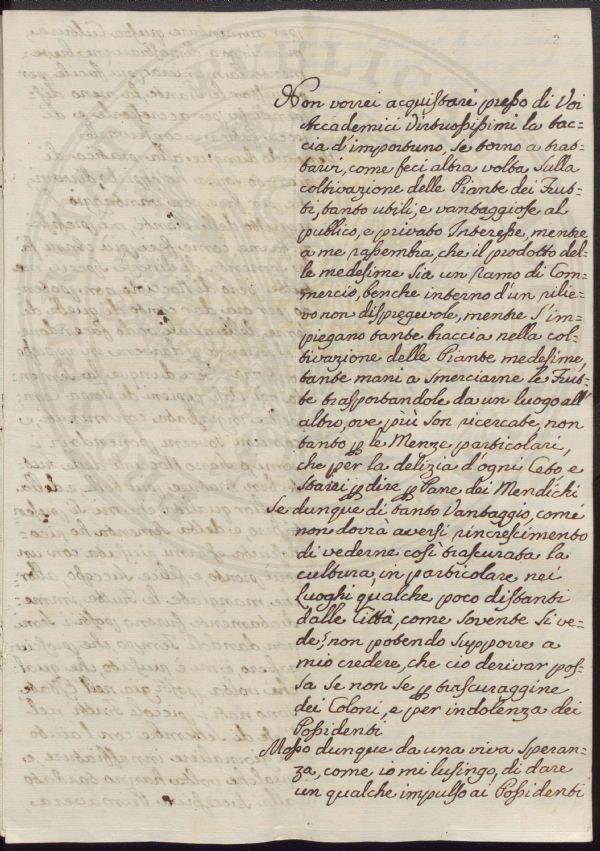 2
Non vorrei acquistare presso di Voi
Accademici Virtuosissimi la tac=
cia d'importuno, se torno a trat=
tarvi, come feci altra volta sulla
coltivazione delle Piante dei Frut=
ti, tanto utili, e vantaggiose al
publico, e privato Interesse, mentre
a me rassembra, che il prodotto del=
le medesime sia un ramo di Com=
mercio, benche interno d'un rilie=
vo non dispregevole, mentre s'im=
piegano tante braccia nella col=
tivazione delle Piante medesime,
tante mani a smerciarne le Frut=
te trasportandole da un luogo all'
altro, ove più son ricercate, non
tanto p le Menze particolari,
che per la delizia d'ogni Ceto e
starei p dire p Pane dei Mendichi
Se dunque di tanto Vantaggio, come
non dovrà aversi rincrescimento
di vederne così trascurata la
cultura, in particolare nei
Luoghi qualche poco distanti
dalle Città, come sovente si ve=
de, non potendo supporre a
mio credere, che cio derivar pos=
sa se non se p trascuraggine
dei Coloni, e per indolenza dei
Possidenti
Mosso dunque da una viva speran=
za, come io mi lusingo, di dare
un qualche impulso ai Possidenti